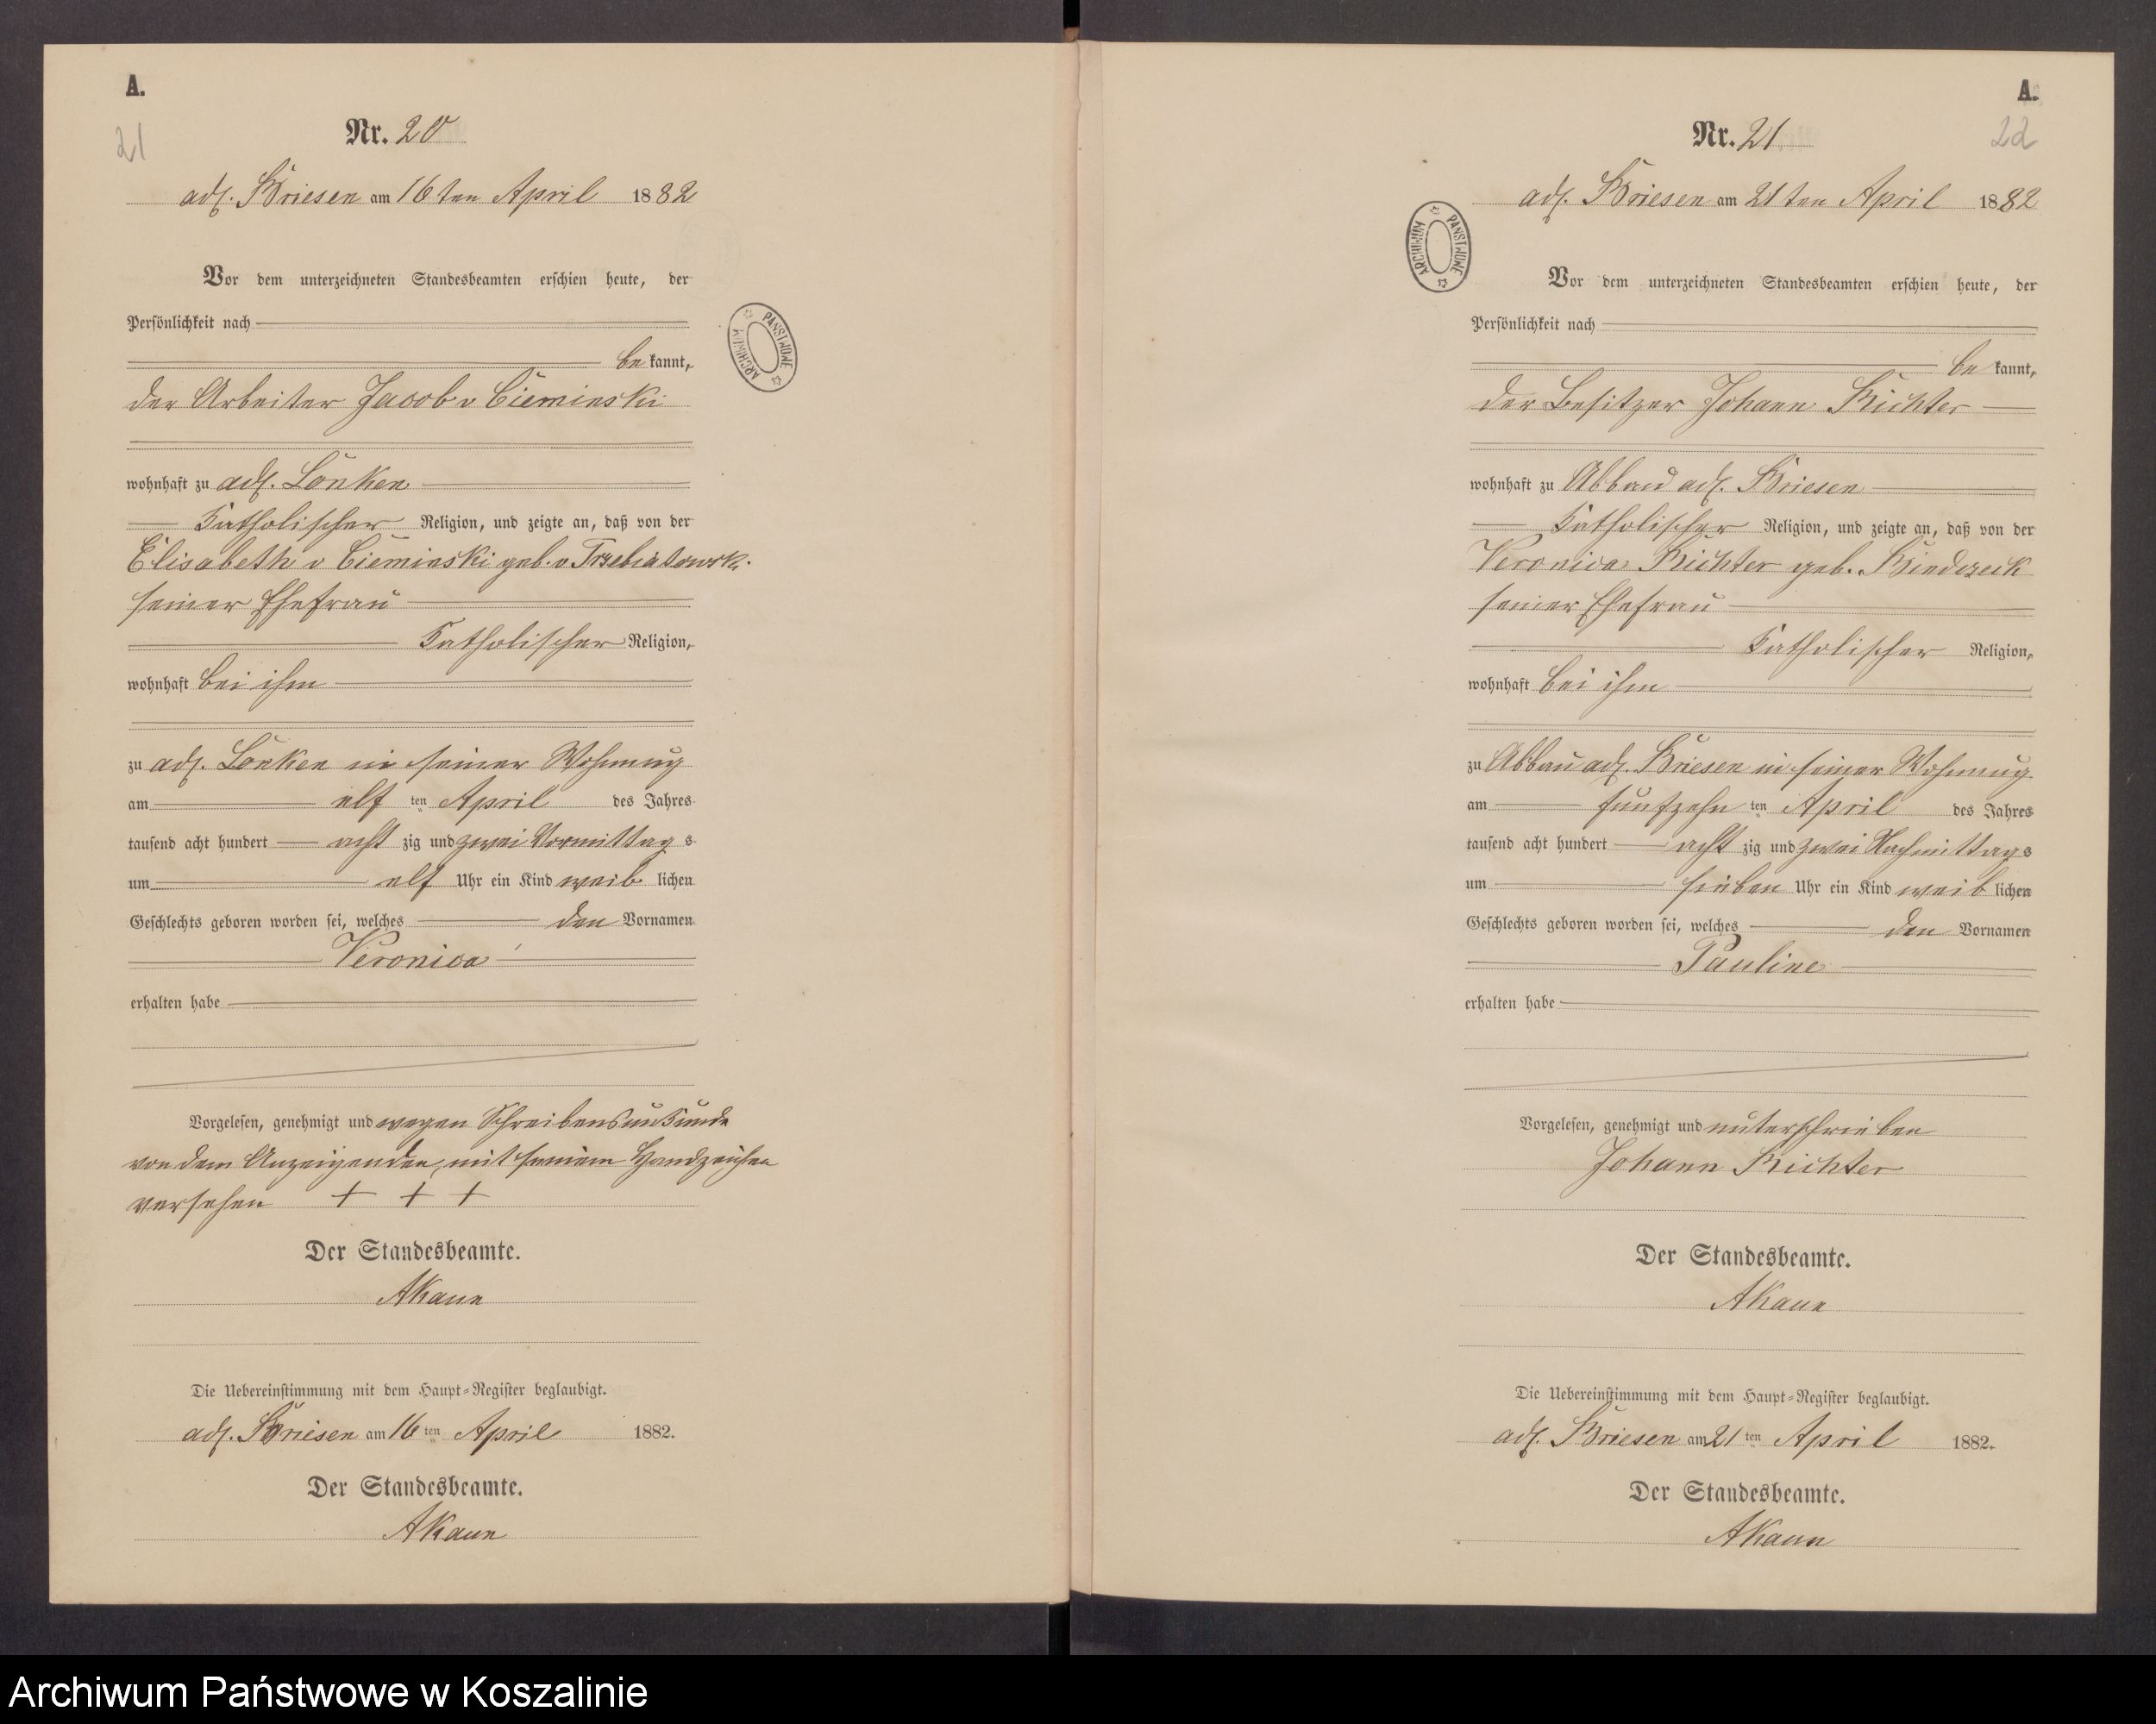 A.
21
Nr. 20
adl. Briesen am 16ten April 1882
Vor dem unterzeichneten Standesbeamten erschien heute, der
Persönlichkeit nach
be kannt,
der Arbeiter Jacob v Cieminski
wohnhaft zu adl. Lonken
Katholischer Religion, und zeigte an, daß von der
Elisabeth v Cieminski geb. v Trzebiatowsk.
seiner Ehefrau
Katholischer Religion,
wohnhaft bei ihm
zu adl. Lonken in seiner Wohnung
am elf ten April des Jahres
tausend acht hundert acht zig und zwei Vormittag s
um elf Uhr ein Kind weib lichen
Geschlechts geboren worden sei, welches den Vornamen
Veronica
erhalten habe
Vorgelesen, genehmigt und wegen Schreibensunkunde
von dem Anzeigenden mit seinem Handzeichen
versehen + + +
Der Standesbeamte.
AKaun
Die Uebereinstimmung mit dem Haupt-Register beglaubigt.
adl. Briesen am 16 ten April 1882.
Der Standesbeamte.
AKaun
ARCHIWUM PAŃSTWOWE
A.
22
Nr. 21
adl. Briesen am 21ten April 1882
Vor dem unterzeichneten Standesbeamten erschien heute, der
Persönlichkeit nach
be kannt,
der Besitzer Johann Richter
wohnhaft zu Abbau adl. Briesen
Katholischer Religion, und zeigte an, daß von der
Veronica Richter geb. Bindczeck
seiner Ehefrau
Katholischer Religion,
wohnhaft bei ihm
zu Abbau adl. Briesen in seiner Wohnung
am funfzehn ten April des Jahres
tausend acht hundert acht zig und zwei Nachmittags
um sieben Uhr ein Kind weib lichen
Geschlechts geboren worden sei, welches den Vornamen
Pauline
erhalten habe
Vorgelesen, genehmigt und unterschrieben
Johann Richter
Der Standesbeamte.
AKaun
Die Uebereinstimmung mit dem Haupt-Register beglaubigt.
adl. Briesen am 21 ten April 1882.
Der Standesbeamte.
AKaun
ARCHIWUM PAŃSTWOWE
Archiwum Państwowe w Koszalinie